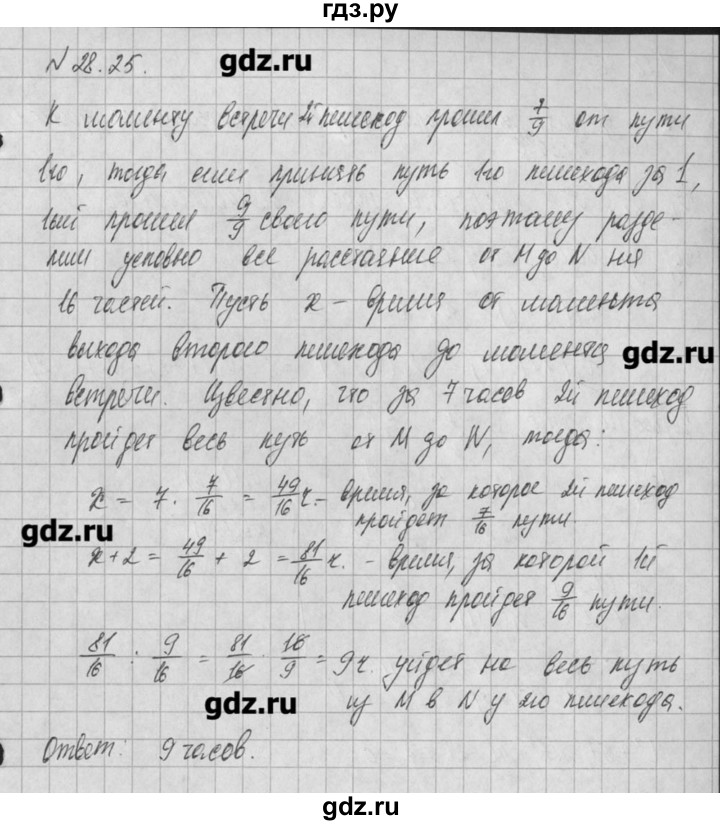 гдз.ру
№ 28.25.
gdz.ru
К моменту встречи 2й пешеход прошел 7/9 от пути
1го, тогда если принять путь 1го пешехода за 1,
1ый прошел 9/9 своего пути, поэтому разде-
лим условно все расстояние от M до N на
16 частей. Пусть x - время от момента
выхода второго пешехода до момента
gdz.ru
встречи. Известно, что за 7 часов 2й пешеход
пройдет весь путь от M до N, тогда:
x = 7 · 7/16 = 49/16 ч. - время, за которое 2й пешеход
пройдет 7/16 пути
gdz.ru
x+2 = 49/16 + 2 = 81/16 ч. - время, за которой 1й
пешеход пройдет 9/16 пути.
81/16 : 9/16 = 81/16 · 16/9 = 9 ч. уйдет на весь путь
gdz.ru
из M в N у 2го пешехода.
Ответ: 9 часов.
gdz.ru